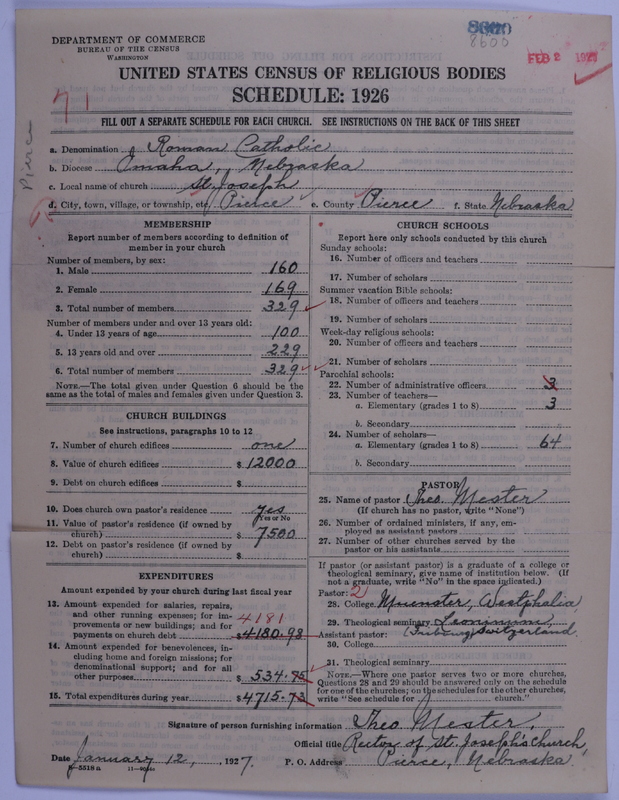 8600
8600
DEPARTMENT OF COMMERCE
BUREAU OF THE CENSUS
WASHINGTON
FEB 2 1927
UNITED STATES CENSUS OF RELIGIOUS BODIES
SCHEDULE: 1926
71
FILL OUT A SEPARATE SCHEDULE FOR EACH CHURCH. SEE INSTRUCTIONS ON THE BACK OF THIS SHEET
Pierce
a. Denomination Roman Catholic
b. Diocese Omaha, Nebraska
c. Local name of church St. Joseph
d. City, town, village, or township, etc. Pierce e. County Pierce f. State Nebraska
MEMBERSHIP
Report number of members according to definition of
member in your church
Number of members, by sex:
1. Male 160
2. Female 169
3. Total number of members 329
Number of members under and over 13 years old:
4. Under 13 years of age 100
5. 13 years old and over 229
6. Total number of members 329
NOTE.—The total given under Question 6 should be the
same as the total of males and females given under Question 3.
CHURCH BUILDINGS
See instructions, paragraphs 10 to 12
7. Number of church edifices one
8. Value of church edifices $ 12000
9. Debt on church edifices $
10. Does church own pastor's residence yes
Yes or No
11. Value of pastor's residence (if owned by
church) $ 7500
12. Debt on pastor's residence (if owned by
church) $
EXPENDITURES
Amount expended by your church during last fiscal year
13. Amount expended for salaries, repairs,
and other running expenses; for im-
provements or new buildings; and for
payments on church debt $ 4180.98
4181
14. Amount expended for benevolences, in-
cluding home and foreign missions; for
denominational support; and for all
other purposes $ 534.75
15. Total expenditures during year $ 4715.73
CHURCH SCHOOLS
Report here only schools conducted by this church
Sunday schools:
16. Number of officers and teachers
17. Number of scholars
Summer vacation Bible schools:
18. Number of officers and teachers
19. Number of scholars
Week-day religious schools:
20. Number of officers and teachers
21. Number of scholars
Parochial schools:
22. Number of administrative officers 3
23. Number of teachers—
a. Elementary (grades 1 to 8) 3
b. Secondary
24. Number of scholars—
a. Elementary (grades 1 to 8) 64
b. Secondary
PASTOR
25. Name of pastor Theo. Mester
(If church has no pastor, write "None")
26. Number of ordained ministers, if any, em-
ployed as assistant pastors
27. Number of other churches served by the
pastor or his assistants
If pastor (or assistant pastor) is a graduate of a college or
theological seminary, give name of institution below. (If
not a graduate, write "No" in the space indicated.)
Pastor: 2
28. College Muenster, Westphalia
29. Theological seminary Leoninum,
Assistant pastor: (Fribourg) Switzerland.
30. College
31. Theological seminary
NOTE.—Where one pastor serves two or more churches,
Questions 28 and 29 should be answered only on the schedule
for one of the churches; on the schedules for the other churches,
write "See schedule for church."
Signature of person furnishing information Theo Mester,
Official title Rector of St. Joseph's church,
Date January 12, 1927. P. O. Address Pierce, Nebraska.